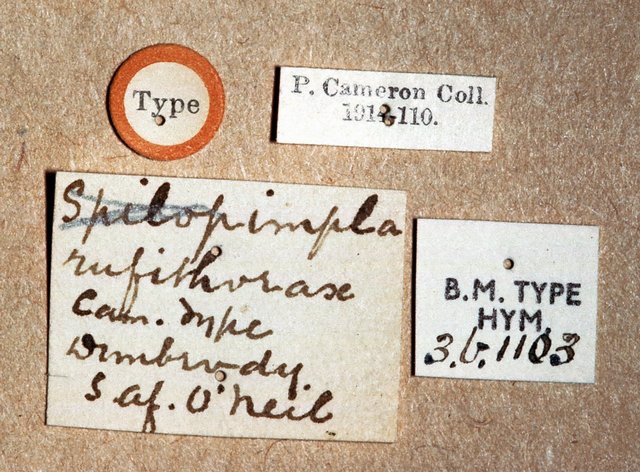 Type
P. Cameron Coll.
1914-110.
Spilopimpla
rufithorax
Cam. Type
Dunbrody.
S. af. O'Neil
B.M. TYPE
HYM.
3.b.1103